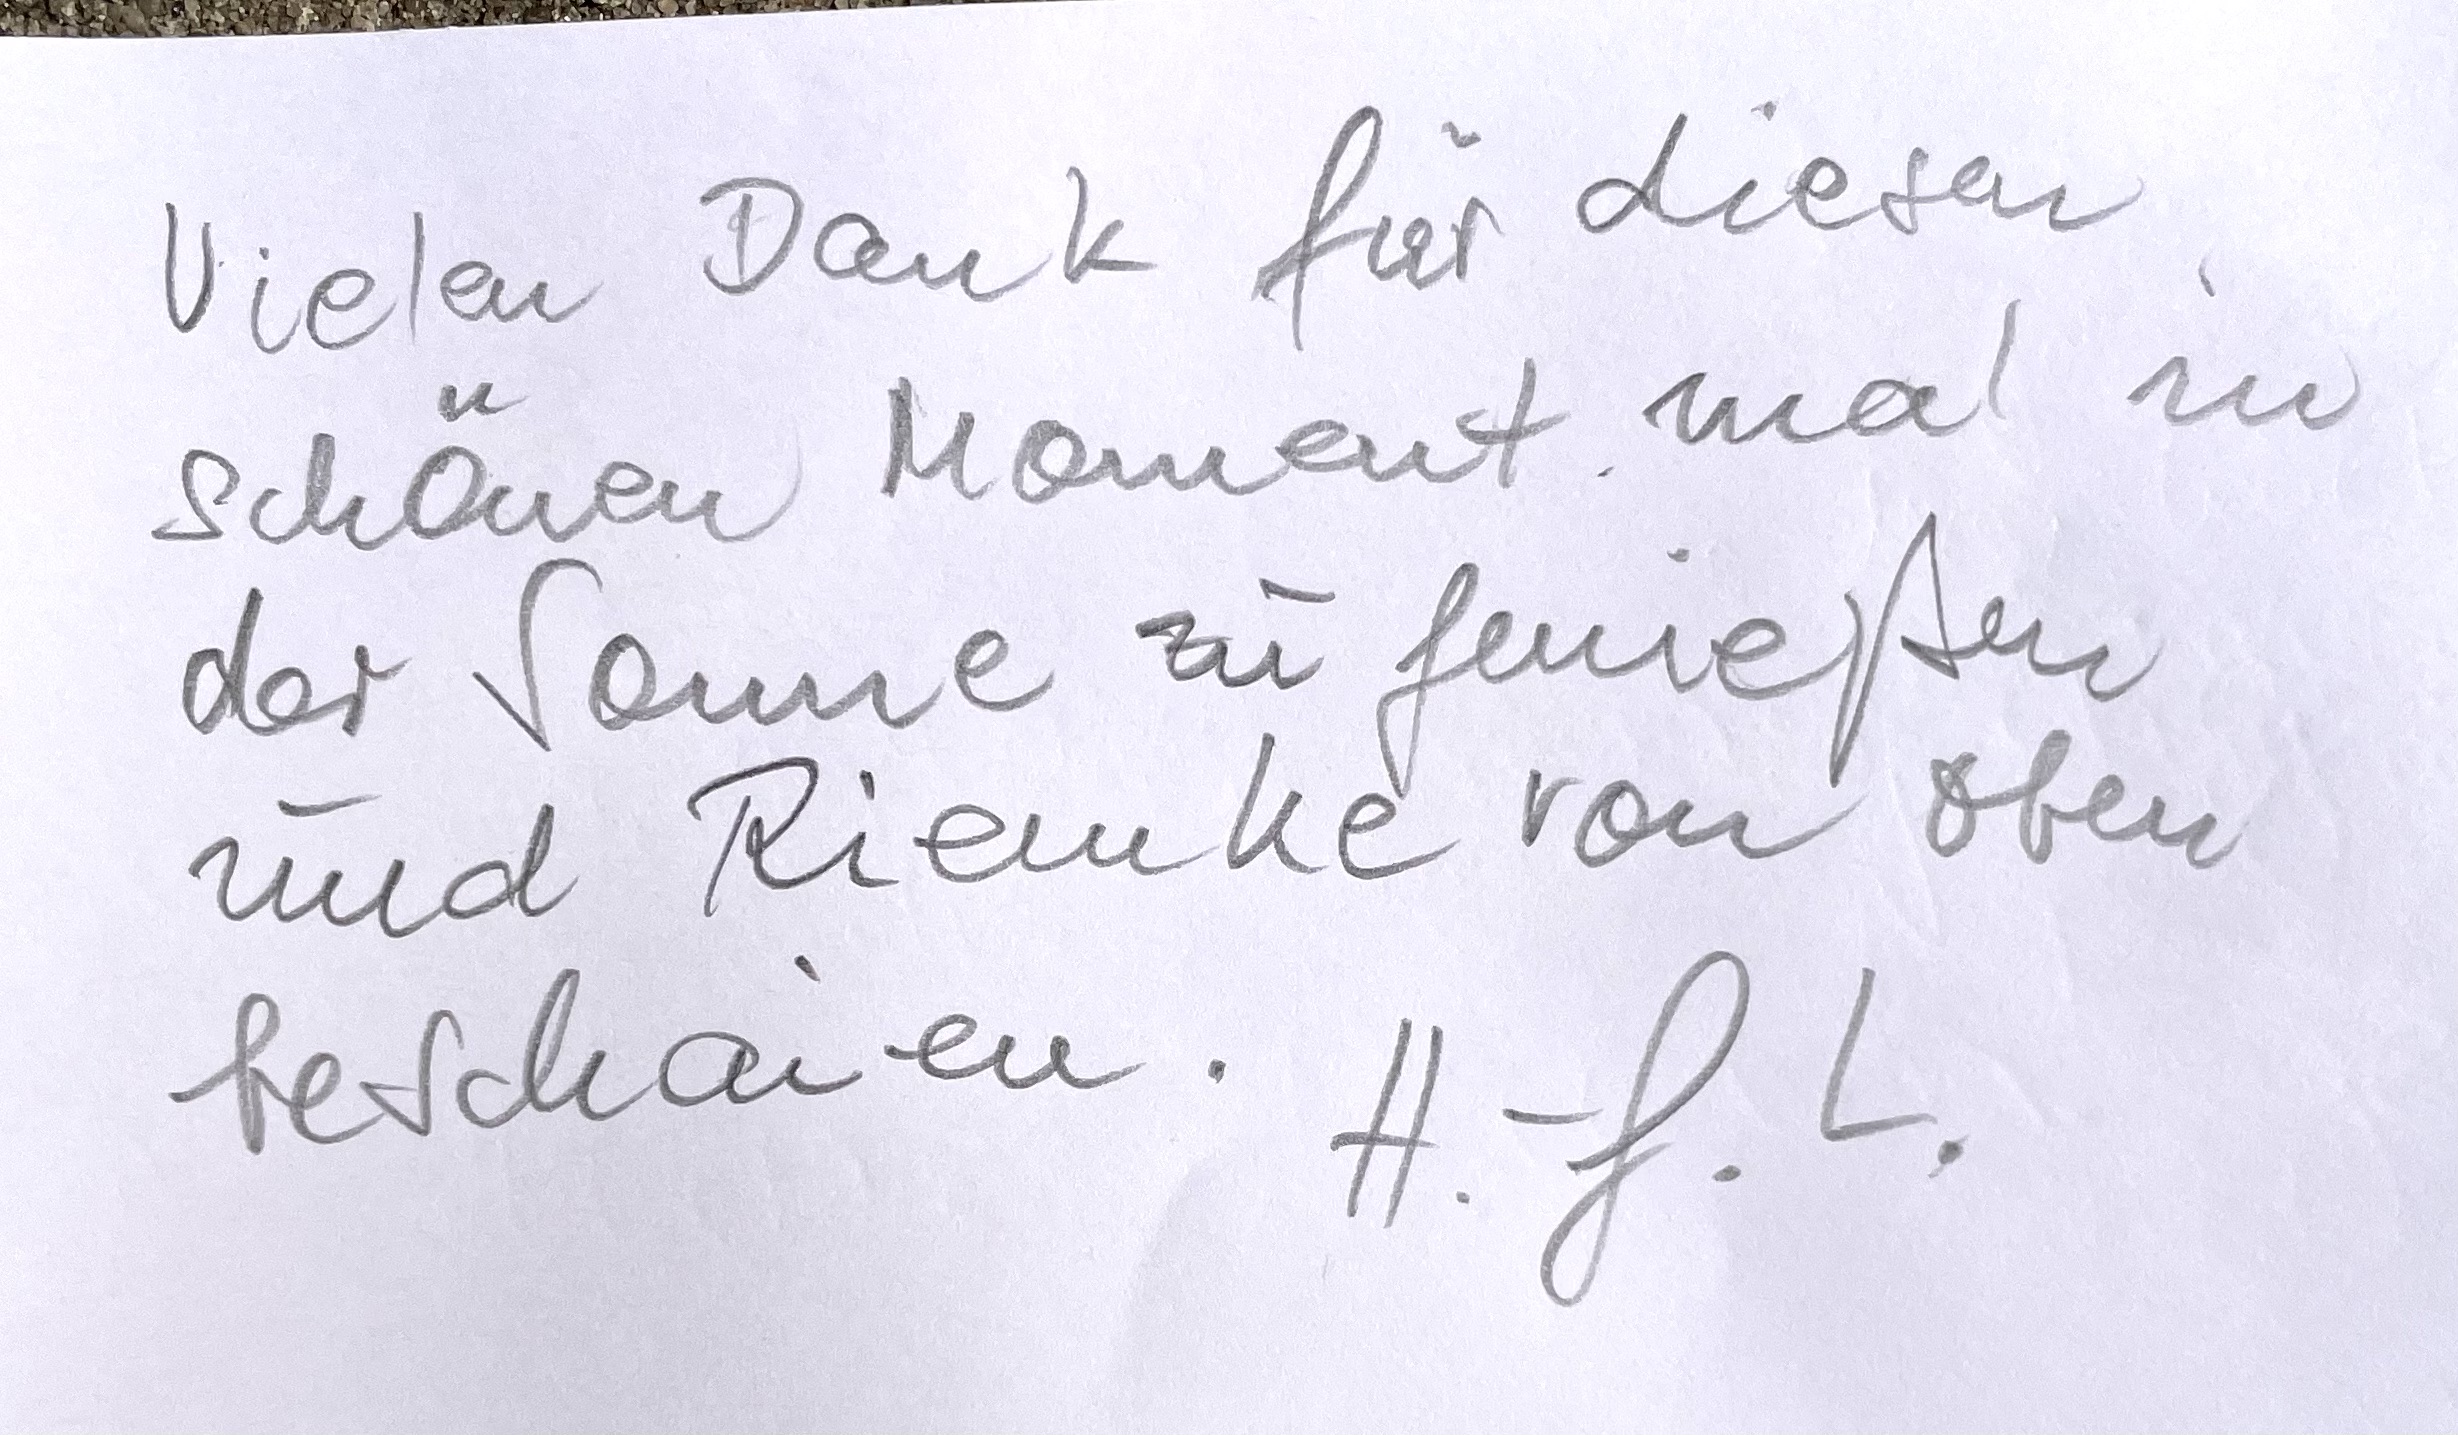 Vielen Dank für diesen
schönen Moment. mal in
der Sonne zu genießen
und Riemke von oben
beschauen. H.-J. L.